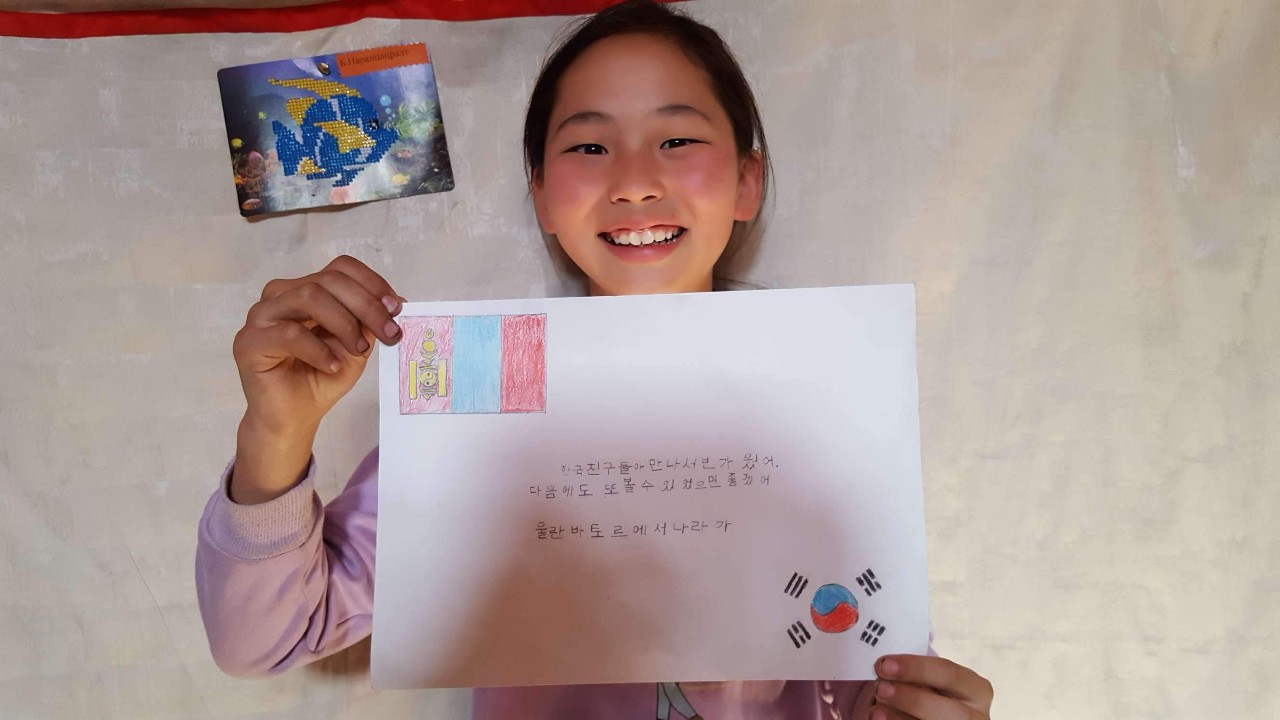 Б.Нарманцрал
한국친구들아만나서반가 웠어.
다음에도 또볼수 있었으면 좋겠어
울란바토르에서나라가